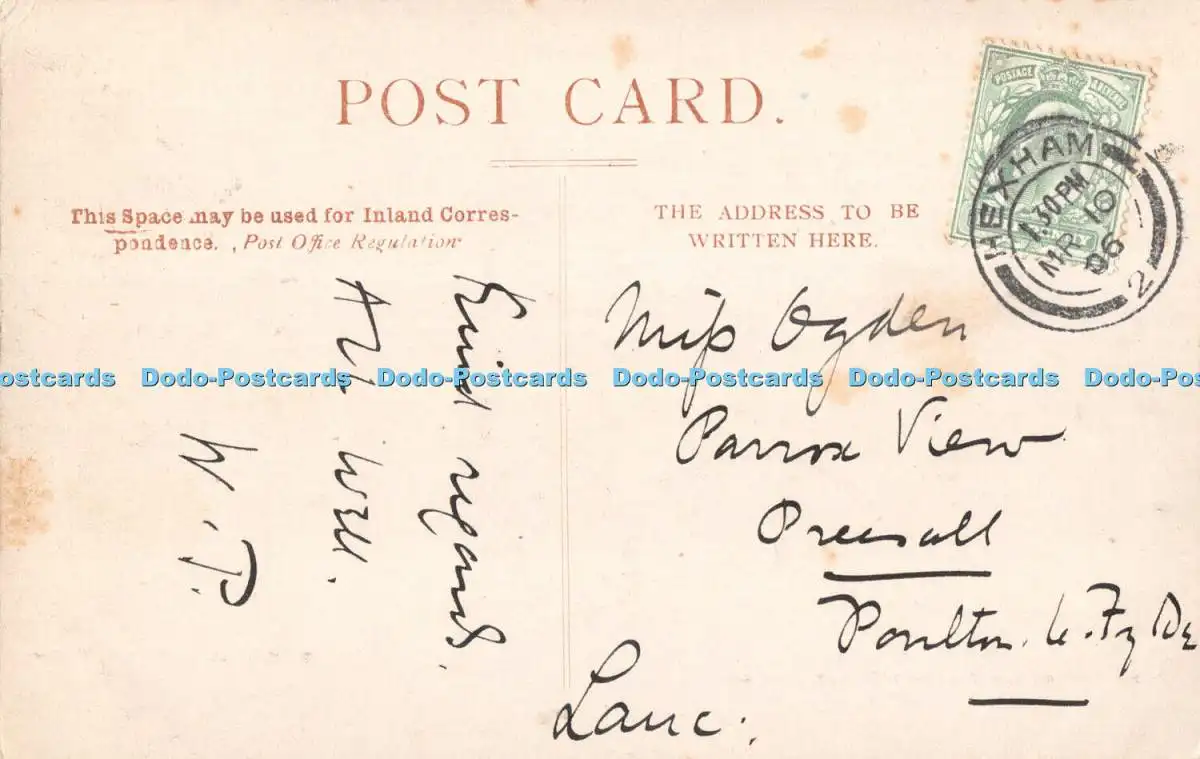 POST CARD.
This Space may be used for Inland Corres-
pondence. , Post Office Regulation
THE ADDRESS TO BE
WRITTEN HERE.
POSTAGE REVENUE
HEXHAM
1.30PM
MR 10
06
2
Kind regards.
All well.
W. P.
Miss Ogden
Parrox View
Preesall
Poulton. le. Fylde
Lanc:
ostcards Dodo-Postcards Dodo-Postcards Dodo-Postcards Dodo-Postcards Dodo-Pos